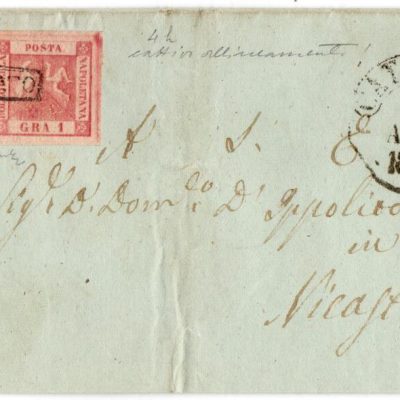 POSTA
NAPOLETANA
GRA 1
4 h
cattivo allineamento!
A S. E
Sigr. D. Domco. D'Ippolito
in
Nicast